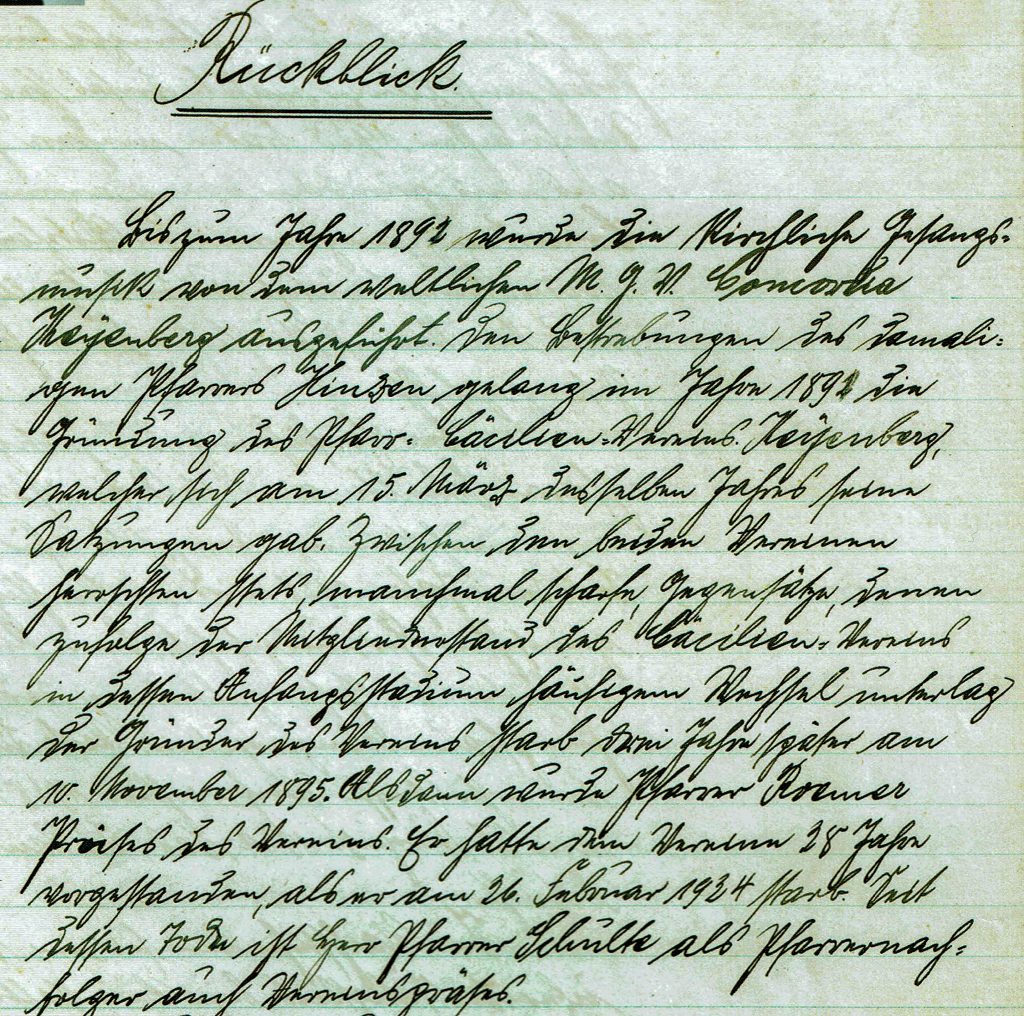 Rückblick.
Bis zum Jahre 1892 wurde die Kirchliche Gesangs-
musik von dem weltlichen M. G. V. Concordia
Keyenberg ausgeführt. Den Bestrebungen des damali-
gen Pfarrers Hinzen gelang im Jahre 1892 die
Gründung des Pfarr- Cäcilien-Vereins. Keyenberg,
welcher sich am 15. März desselben Jahres seine
Satzungen gab. Zwischen den beiden Vereinen
herrschten stets, manchmal scharfe, Gegensätze, denen
zufolge der Mitgliederstand des Cäcilien-Vereins
in dessen Anfangsstadium häufigem Wechsel unterlag
der Gründer des Vereins starb drei Jahre später am
10. November 1895. Alsdann wurde Pfarrer Roemer
Präses des Vereins. Er hatte dem Vereine 28 Jahre
vorgestanden, als er am 26. Februar 1924 starb. Seit
dessen Tode ist Herr Pfarrer Schulte als Pfarrernach-
folger auch Vereinspräses.